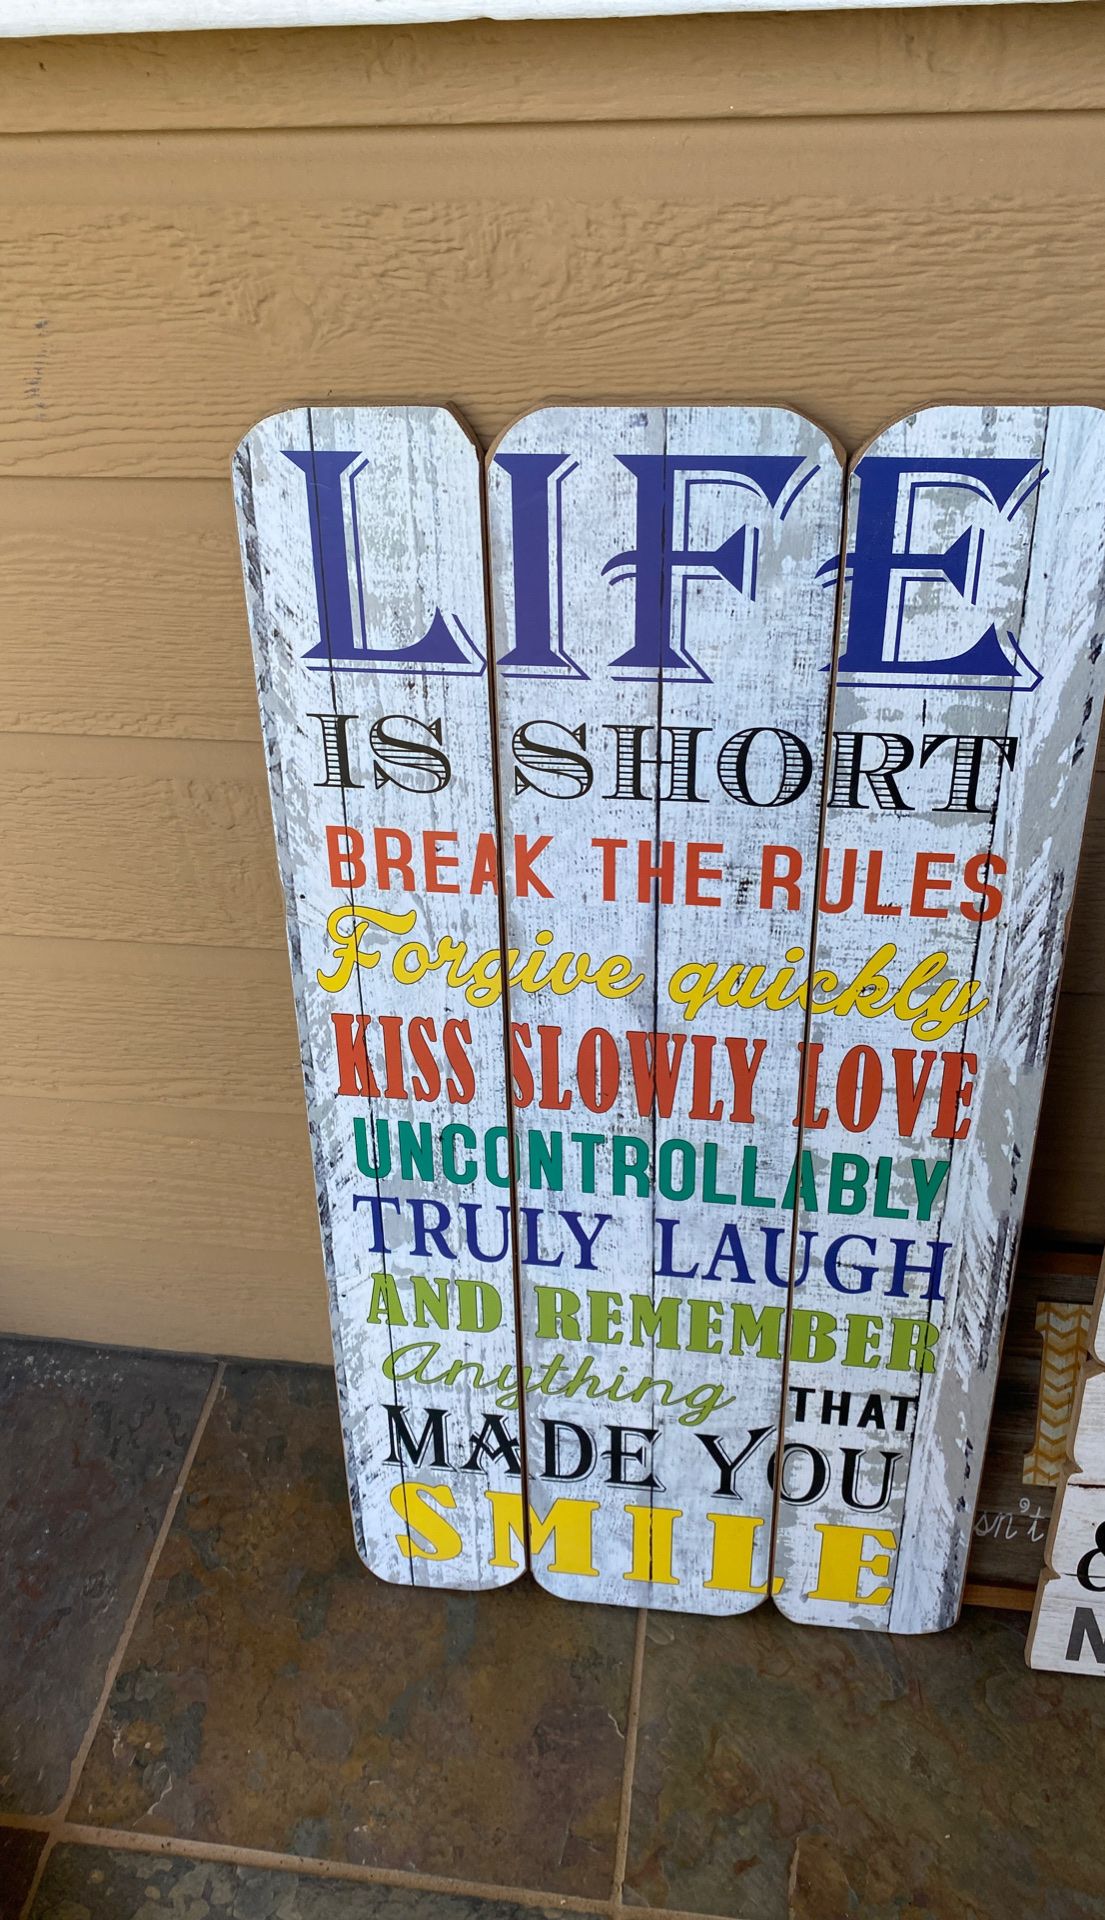 LIFE
IS SHORT
BREAK THE RULES
Forgive quickly
KISS SLOWLY LOVE
UNCONTROLLABLY
TRULY LAUGH
AND REMEMBER
Anything THAT
MADE YOU
SMILE
sn't
&